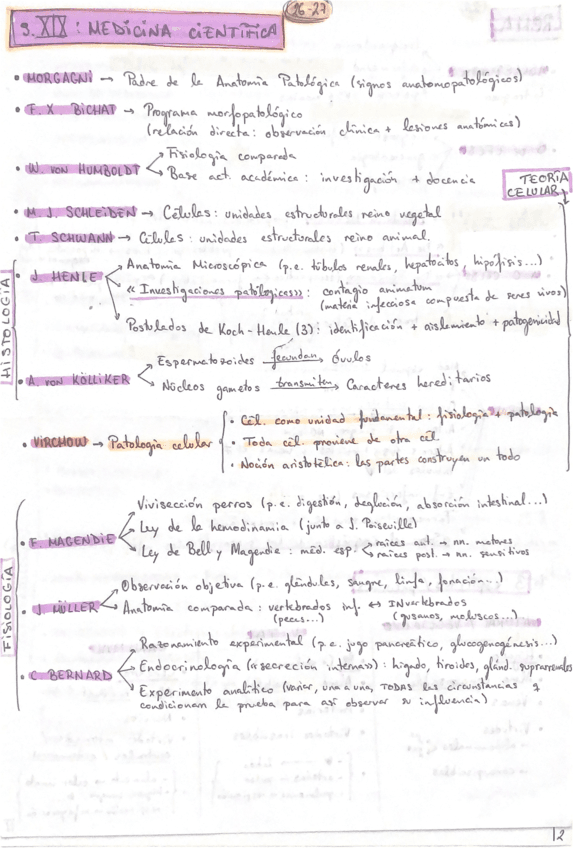 26-27
S. XIX: MEDICINA CIENTÍFICA
• MORGAGNI → Padre de la Anatomía Patológica (signos anatomopatológicos)
• F. X. BICHAT → Programa morfopatológico
(relación directa: observación clínica + lesiones anatómicas)
• W. VON HUMBOLDT
→ Fisiología comparada
→ Base act. académica: investigación + docencia
TEORÍA
CELULAR
• M. J. SCHLEIDEN → Células: unidades estructurales reino vegetal
• T. SCHWANN → Células: unidades estructurales reino animal
HISTOLOGÍA
• J. HENLE
→ Anatomía Microscópica (p.e. túbulos renales, hepatocitos, hipófisis...)
→ «Investigaciones patológicas»: contagio animatum
(materia infecciosa compuesta de seres vivos)
→ Postulados de Koch-Henle (3): identificación + aislamiento + patogenicidad
• A. VON KÖLLIKER
→ Espermatozoides fecundan óvulos
→ Núcleos gametos transmiten Caracteres hereditarios
• VIRCHOW → Patología celular
• Cél. como unidad fundamental: fisiología + patología
• Toda cél. proviene de otra cél.
• Noción aristotélica: las partes construyen un todo
FISIOLOGÍA
• F. MAGENDIE
→ Vivisección perros (p.e. digestión, deglución, absorción intestinal...)
→ Ley de la hemodinamia (junto a J. Poiseuille)
→ Ley de Bell y Magendie: méd. esp. → raíces ant. → nn. motores
→ raíces post. → nn. sensitivos
• J. MÜLLER
→ Observación objetiva (p.e. glándulas, sangre, linfa, fonación...)
→ Anatomía comparada: vertebrados inf. ↔ INvertebrados
(peces...) (gusanos, moluscos...)
• C. BERNARD
→ Razonamiento experimental (p.e. jugo pancreático, glucogenogénesis...)
→ Endocrinología («secreción interna»): hígado, tiroides, gland. suprarrenales
→ Experimento analítico (variar, una a una, TODAS las circunstancias q
condicionan la prueba para así observar su influencia)
12